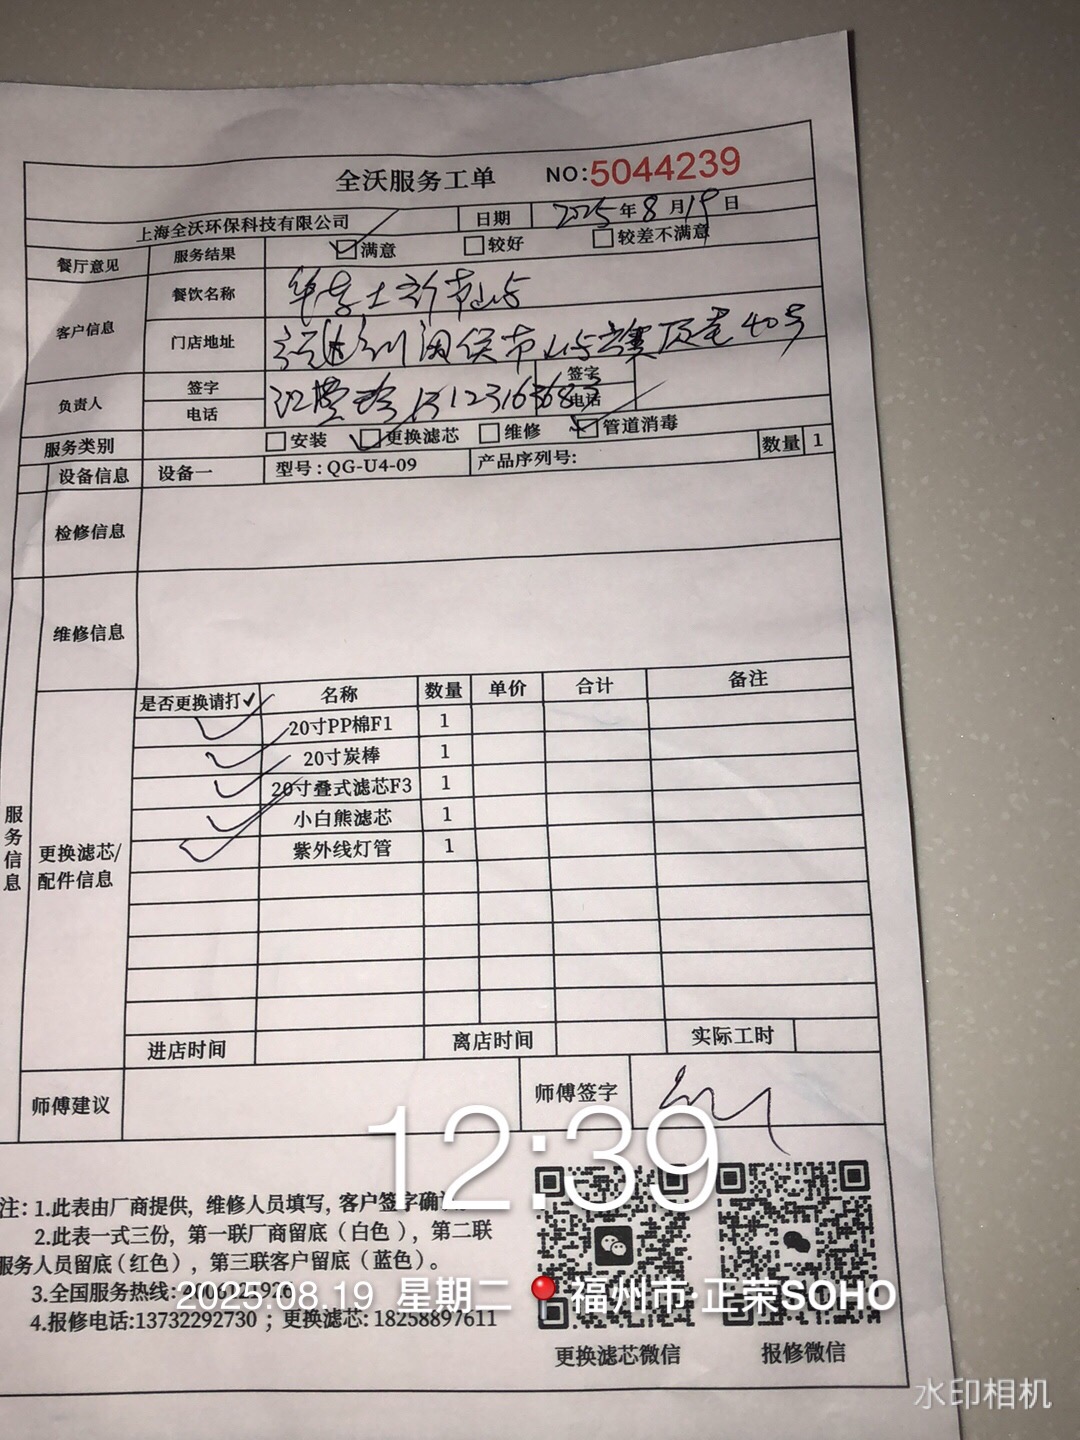 全沃服务工单 NO:5044239
上海全沃环保科技有限公司 日期 2025年8月19日
餐厅意见 服务结果 满意 较好 较差不满意
客户信息 餐饮名称
门店地址 40号
负责人 签字 签字
电话 电话
服务类别 安装 更换滤芯 维修 管道消毒
设备信息 设备一 型号:QG-U4-09 产品序列号: 数量 1
检修信息
维修信息
服务信息
更换滤芯/配件信息
是否更换请打✓ 名称 数量 单价 合计 备注
✓ 20寸PP棉F1 1
✓ 20寸炭棒 1
✓ 20寸叠式滤芯F3 1
✓ 小白熊滤芯 1
✓ 紫外线灯管 1
进店时间 离店时间 实际工时
师傅建议 师傅签字
12:39
注: 1.此表由厂商提供, 维修人员填写, 客户签字确
2.此表一式三份, 第一联厂商留底(白色), 第二联
服务人员留底(红色), 第三联客户留底(蓝色)。
3.全国服务热线:
2025.08.19 星期二 福州市·正荣SOHO
4.报修电话:13732292730 ; 更换滤芯: 18258897611
更换滤芯微信 报修微信
水印相机